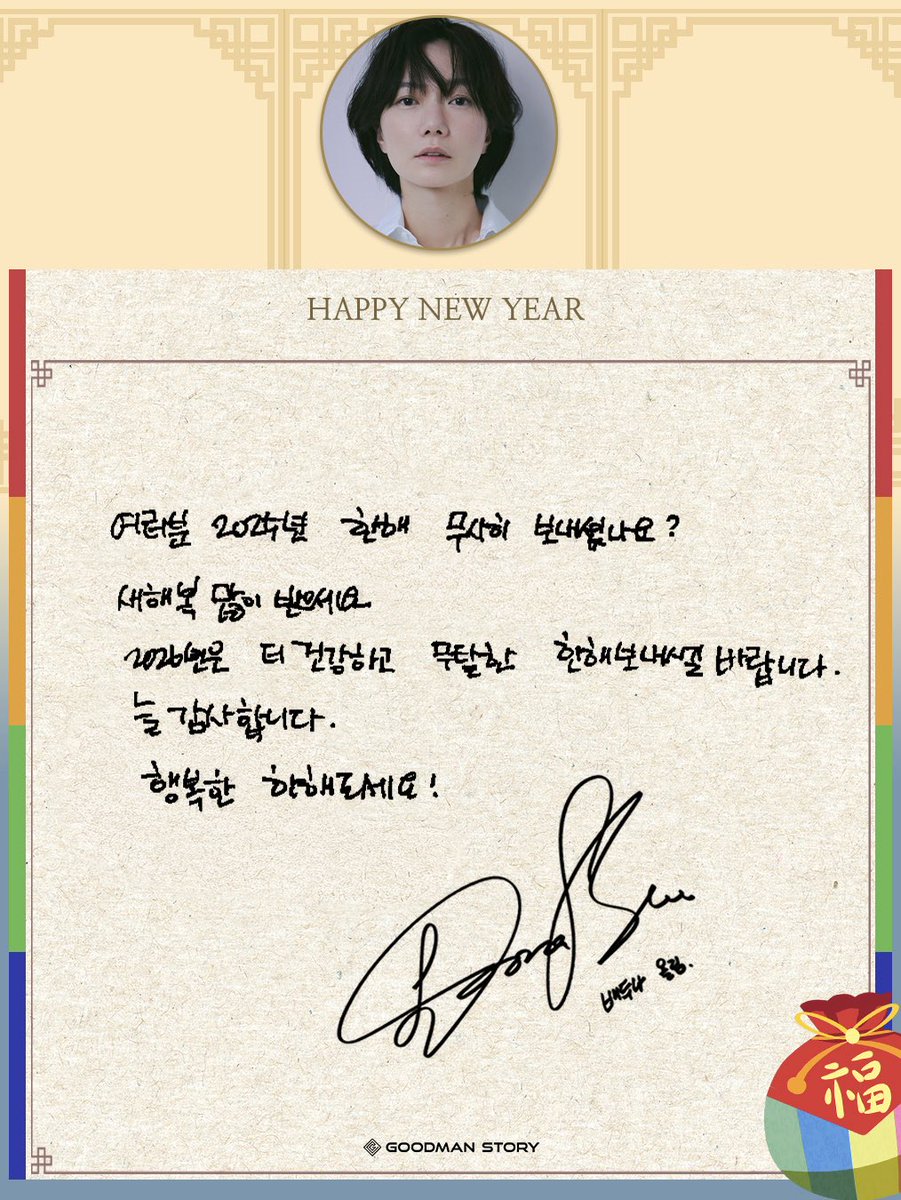 HAPPY NEW YEAR
여러분 2025년 한해 무사히 보내셨나요?
새해복 많이 받으세요
2026년은 더 건강하고 무탈한 한해보내시길 바랍니다.
늘 감사합니다.
행복한 한해되세요!
Doona Bae
배두나 올림.
福
GOODMAN STORY